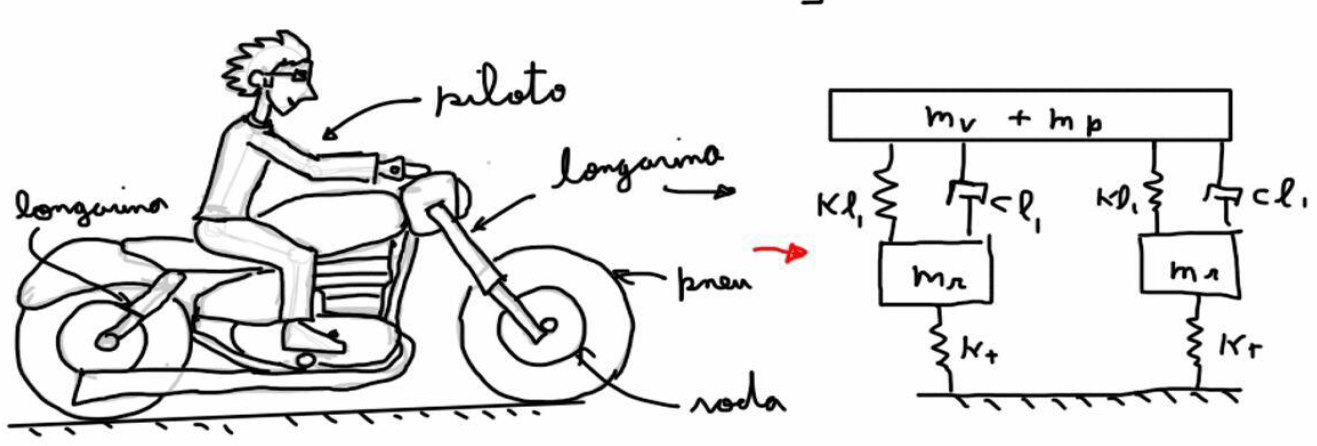 piloto
longarina
longarina
pneu
roda
mv + mp
Kl1
cl1
Kl1
cl1
mr
mr
Kt
Kt